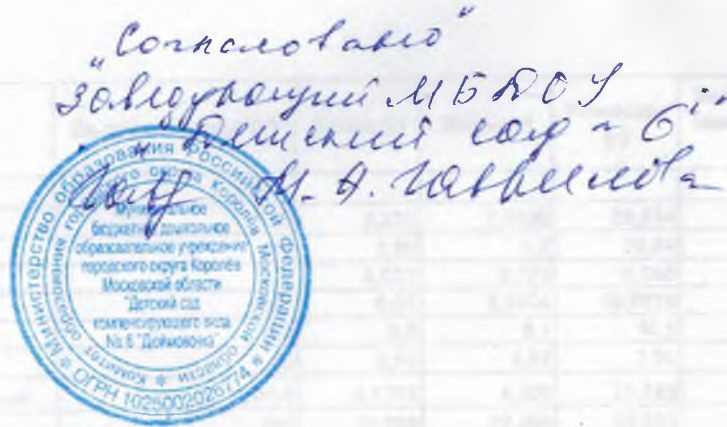 „Согласовано"
заведующий МБДОУ
„Детский сад № 6"
М. А.
Министерство образования Российской Федерации
ОГРН 1025002026774
Комитет образования городского округа Королёв Московской области
Муниципальное
бюджетное дошкольное
образовательное учреждение
городского округа Королёв
Московской области
"Детский сад
компенсирующего вида
№ 6 "Дюймовочка"